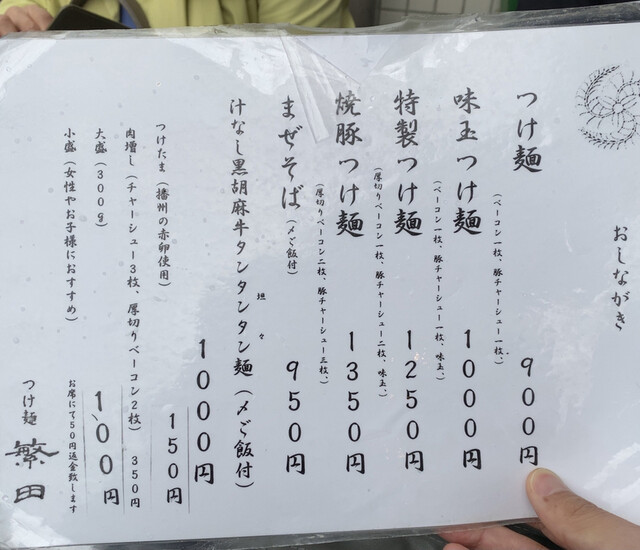 おしながき
つけ麺 900円
(ベーコン一枚、豚チャーシュー一枚、)
味玉つけ麺 1000円
(ベーコン一枚、豚チャーシュー一枚、味玉、)
特製つけ麺 1250円
(厚切りベーコン一枚、豚チャーシュー二枚、味玉、)
焼豚つけ麺 1350円
(厚切りベーコン二枚、豚チャーシュー三枚、)
まぜそば(〆ご飯付) 950円
汁なし黒胡麻牛タンタンタン麺(〆ご飯付) 1000円
坦々
つけたま(播州の赤卵使用) 150円
肉増し(チャーシュー3枚、厚切りベーコン2枚) 350円
大盛(300g) 100円
小盛(女性やお子様におすすめ) お席にて50円返金致します
つけ麺 繁田